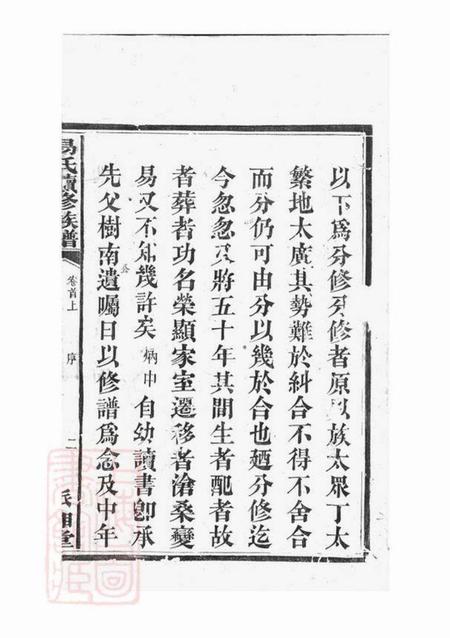 以下爲分修分修者原以族太眾丁太
繁地太廣其勢難於糾合不得不舍合
而分仍可由分以幾於合也廼分修迄
今忽忽又將五十年其間生者配者故
者葬者功名榮顯家室遷移者滄桑變
易又不知幾許矣炳中自幼讀書卽承
先父樹南公遺囑日以修譜爲念及中年
易氏續修族譜
卷首上
序
二